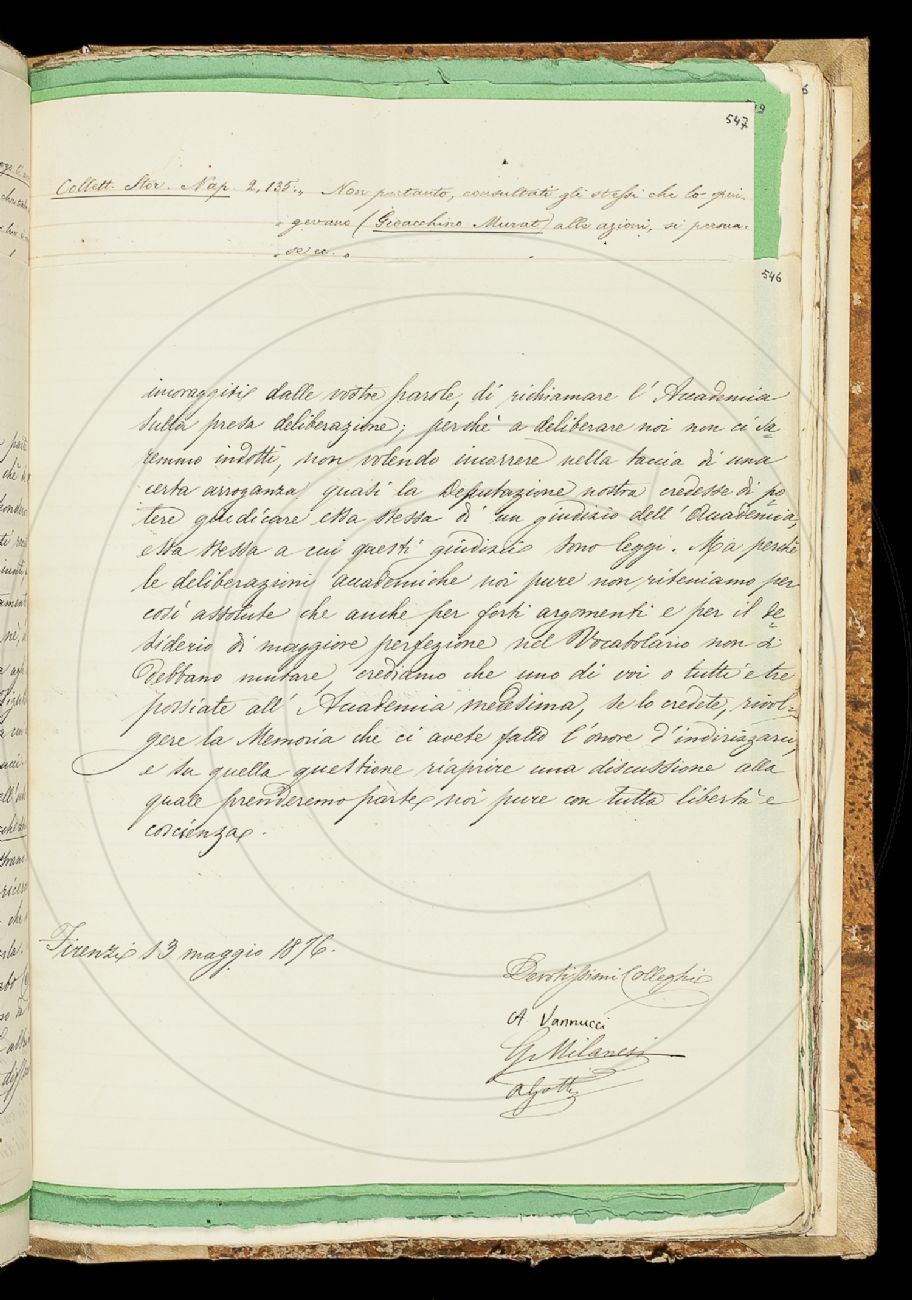 547
Collett. Stor. Nap. 2, 135. „ Non pertanto, consultati gli stessi che lo spin-
„ gevano (Gioacchino Murat) alle azioni, si persua-
„ se ec. „
546
incoraggiti dalle vostre parole, di richiamare l'Accademia
sulla presa deliberazione; perchè a deliberare noi non ci sa
remmo indotti, non volendo incorrere nella taccia di una
certa arroganza, quasi la Deputazione nostra credesse di po
tere giudicare essa stessa di un giudizio dell'Accademia,
essa stessa a cui questi giudizii sono leggi. Ma perchè
le deliberazioni accademiche noi pure non riteniamo per
così assolute che anche per forti argomenti e per il de
siderio di maggiore perfezione nel Vocabolario non si
debbano mutare, crediamo che uno di voi o tutti e tre
possiate all'Accademia medesima, se lo credete, rivol-
gere la Memoria che ci avete fatto l'onore d'indirizzarci,
e su quella questione riaprire una discussione alla
quale prenderemo parte noi pure con tutta libertà e
coscienza.
Firenze 13 maggio 1876.
Devotissimi Colleghi
A. Vannucci
G. Milanesi
A Gotti